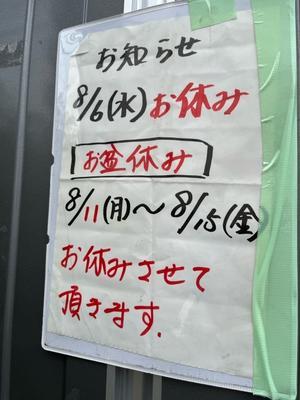 お知らせ
8/6(水)お休み
お盆休み
8/11(月)〜8/15(金)
お休みさせて
頂きます.